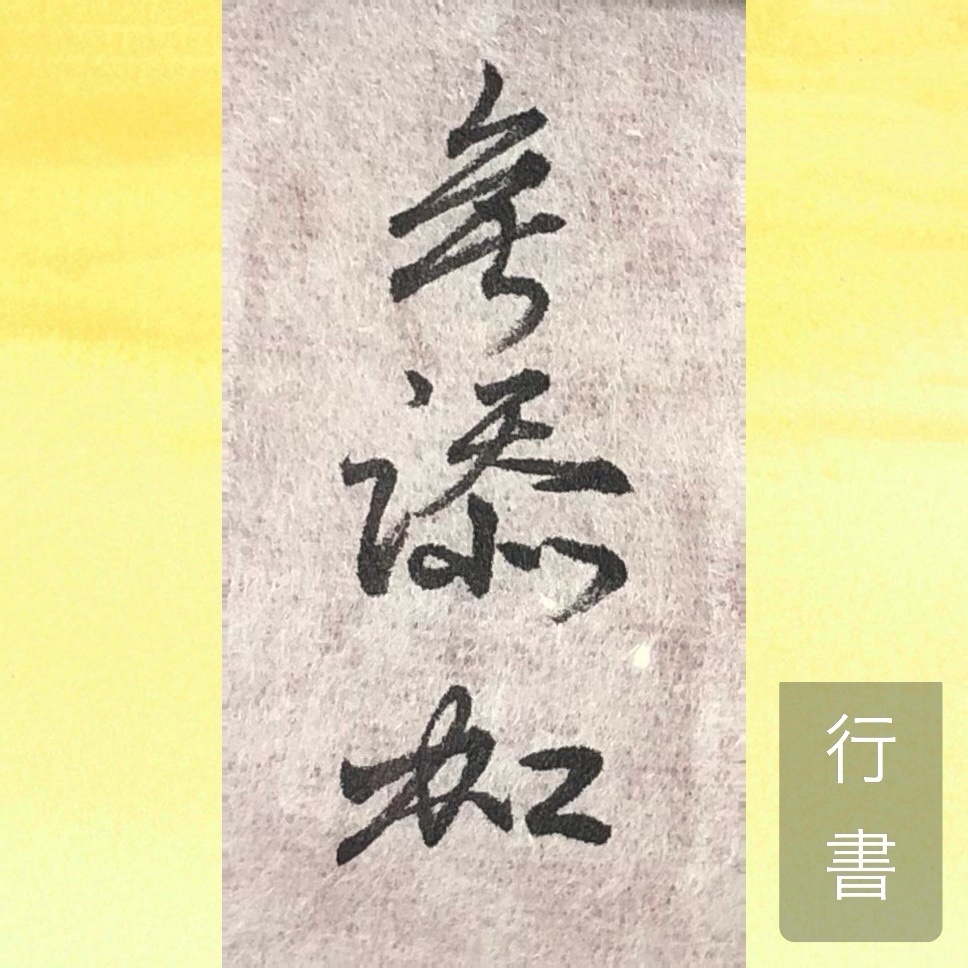 無添加
行書